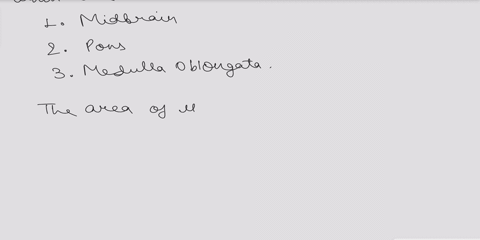 1. Midbrain
2. Pons
3. Medulla Oblongata.
The area of